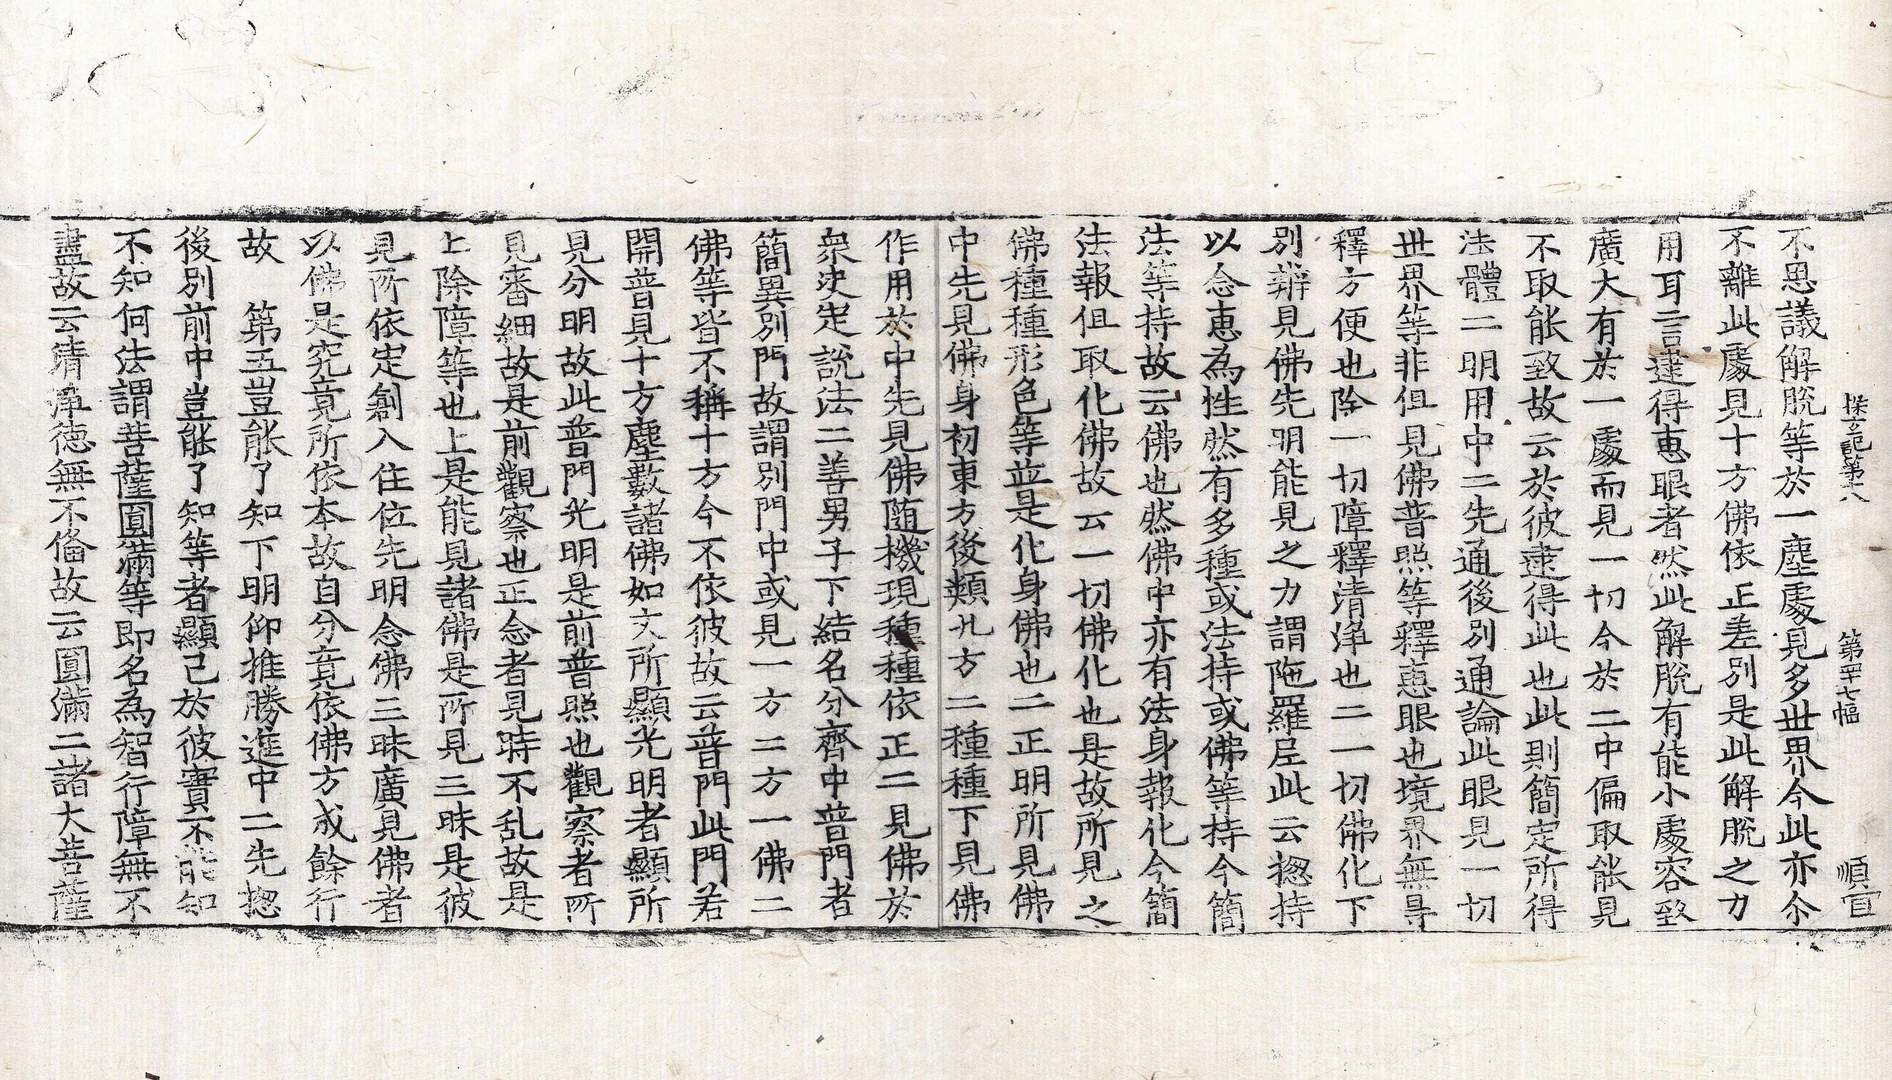 探玄記第十八 第四十七幅 順宣
不思議解脫等於一塵處見多世界今此亦尒
不離此處見十方佛依正差別是此解脫之力
用耳二言逮得惠眼者然此解脫有能小處容致
廣大有於一處而見一切今於二中偏取能見
不取能致故云於彼逮得此也此則簡定所得
法體二明用中二先通後別通論此眼見一切
世界等非但見佛普照等釋惠眼也境界無㝵
釋方便也除一切障釋清淨也二一切佛化下
別辨見佛先明能見之力謂陁羅𡰱此云揔持
以念惠為性然有多種或法持或佛等持今簡
法等持故云佛也然佛中亦有法身報化今簡
法報但取化佛故云一切佛化也是故所見之
佛種種形色等並是化身佛也二正明所見佛
中先見佛身初東方後類九方二種種下見佛
作用於中先見佛隨機現種種依正二見佛於
衆決定說法二善男子下結名分齊中普門者
簡異別門故謂別門中或見一方二方一佛二
佛等皆不稱十方今不依彼故云普門此門若
開普見十方塵數諸佛如文所顯光明者顯所
見分明故此普門光明是前普照也觀察者所
見審細故是前觀察也正念者見時不乱故是
上除障等也上是能見諸佛是所見三昧是彼
見所依定創入住位先明念佛三昧廣見佛者
以佛是究竟所依本故自分竟依佛方成餘行
故　第五豈能了知下明仰推勝進中二先揔
後別前中豈能了知等者顯己於彼實不能知
不知何法謂菩薩圓滿等即名為智行障無不
盡故云清淨德無不俻故云圓滿二諸大菩薩